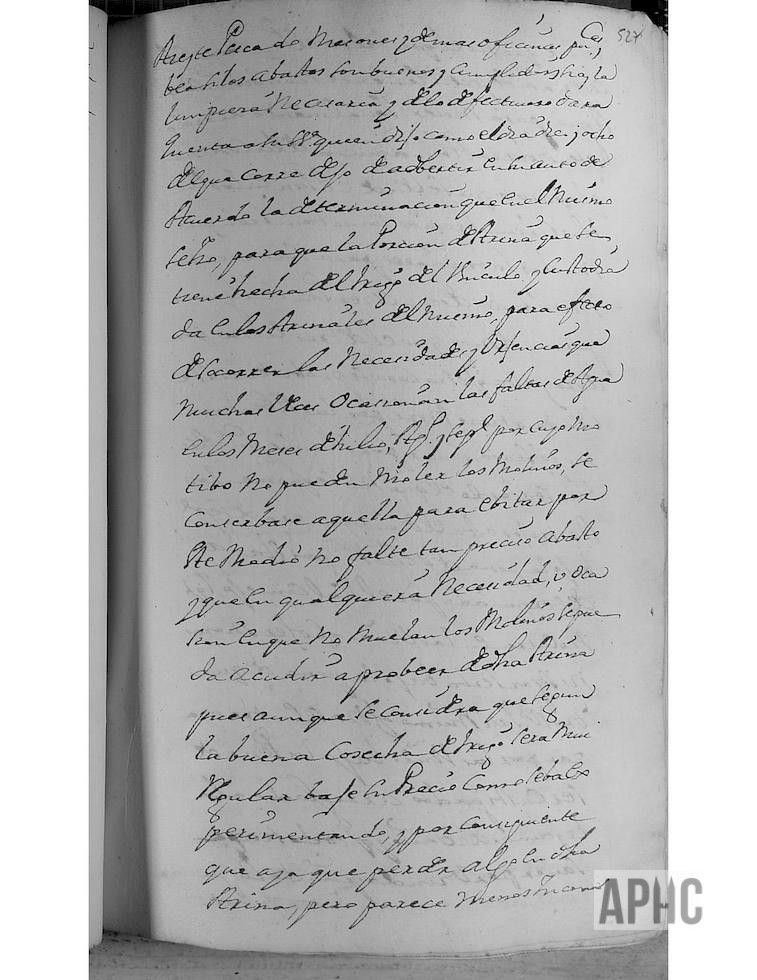 527
Azeyte Pescado Mesones y demas oficinas pu.cas y
bea si los abastos son buenos y Cumplidos, si ay la
limpiera Necesaria, y de lo defectuoso dara
quenta a su SS.ª quien dijo como el dia diez y ocho
del que Corre dejo de adbertir en su auto de
Acuerdo la determinacion que en el Mismo
se tº, para que la Porcion de Arina que se
tiene hecha del trigo del Pusito y Custodia
da en los Arinales del mismo, para efecto
de socorrer las Necesidades y Urjencias que
muchas Veces Ocasionan las faltas de Agua
en los Meses de Julio, Ag.to y Sep.e por cuyo mo
tibo no pueden Moler los Molinos, se
Conserbase aquella para ebitar por
Este Medio no falte tan preciso abasto
y que en qualquiera Necesidad, u Oca
sion en que No Muelan los Molinos se pue
da acudir a probeer de dha Arina
pues aunque se Considera que segun
la buena Cosecha de trigo sera Mui
Regular baje su Precio Como se ba ex
perimentando, y por Consiguiente
que aya que perder algo en dha
Arina, pero parece menos Incomb
APHC